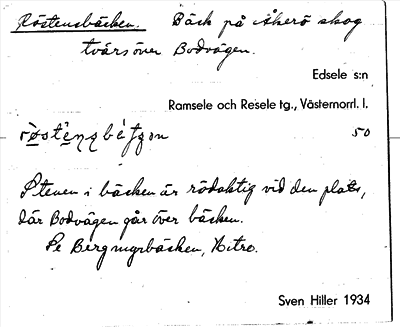 Röstensbäcken. Bäck på Åkerö skog
tvärs över Bodvägen.
Edsele s:n
Ramsele och Resele tg., Västernorrl. l.
50
Stenen i bäcken är rödaktig vid den plats,
där Bodvägen går över bäcken.
Se Bergmyrbäcken,
Sven Hiller 1934